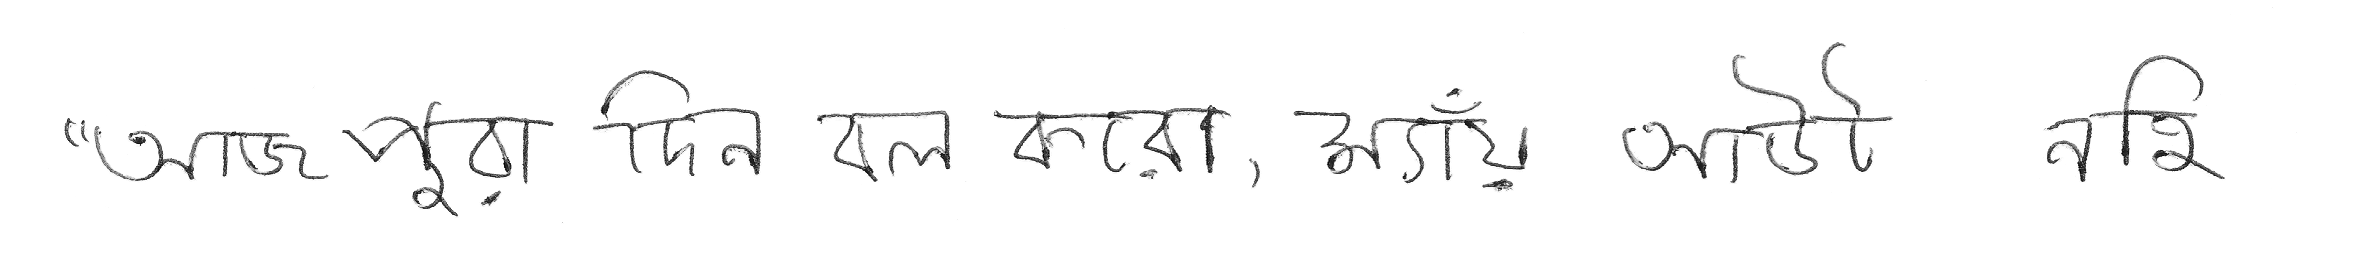 “আজ পুরা দিন বল করো, ম্যাঁয় আউট নহি